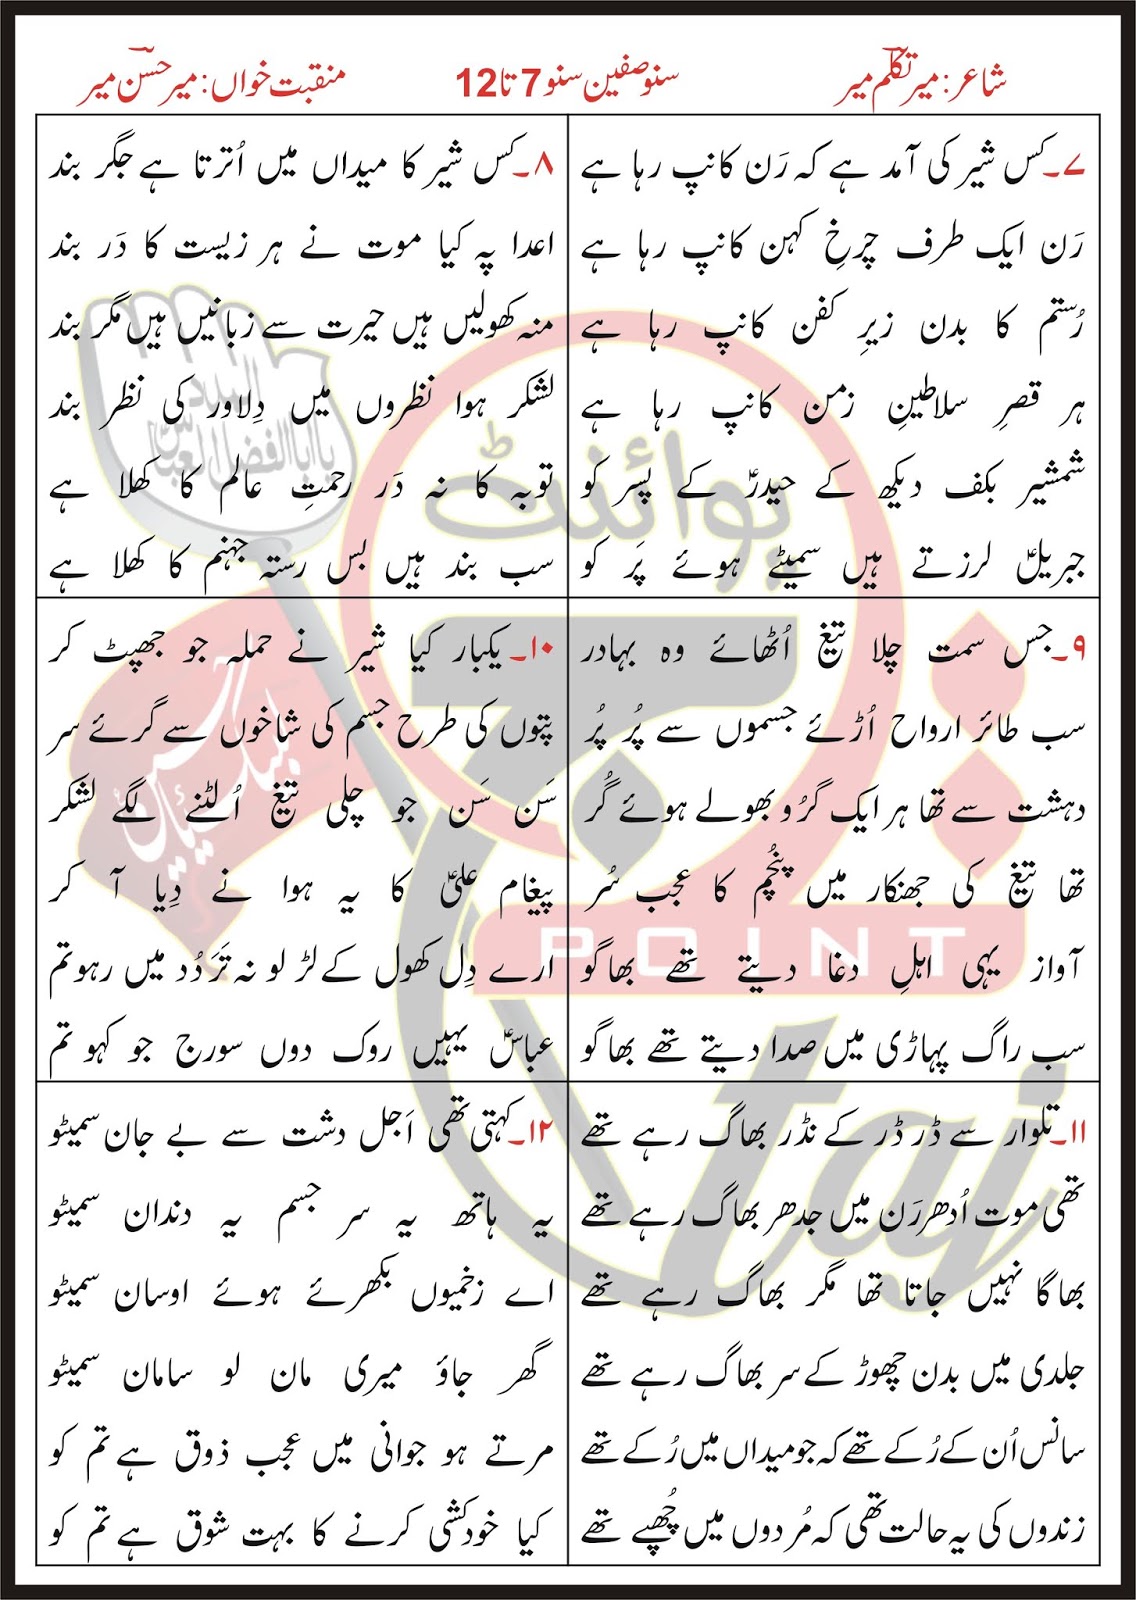 شاعر: میر تکلمؔ میر
سنو صفین سنو 7 تا 12
منقبت خواں: میر حسنؔ میر
۷۔کس شیر کی آمد ہے کہ رَن کانپ رہا ہے
رَن ایک طرف چرخِ کہن کانپ رہا ہے
رُستم کا بدن زیرِ کفن کانپ رہا ہے
ہر قصرِ سلاطینِ زمن کانپ رہا ہے
شمشیر بکف دیکھ کے حیدرؑ کے پسر کو
جبریلؑ لرزتے ہیں سمیٹے ہوئے پَر کو
۸۔کس شیر کا میداں میں اُترتا ہے جگر بند
اعدا پہ کیا موت نے ہر زیست کا دَر بند
منہ کھولیں ہیں حیرت سے زبانیں ہیں مگر بند
لشکر ہوا نظروں میں دِلاور کی نظر بند
توبہ کا نہ دَر رحمتِ عالم کا کھلا ہے
سب بند ہیں بس رستہ جہنم کا کھلا ہے
۹۔جس سمت چلا تیغ اُٹھائے وہ بہادر
سب طائر ارواح اُڑائے جسموں سے پُر پُر
دہشت سے تھا ہر ایک گرُو بھولے ہوئے گُر
تھا تیغ کی جھنکار میں پنچُم کا عجب سُر
آواز یہی اہلِ دغا دیتے تھے بھاگو
سب راگ پہاڑی میں صدا دیتے تھے بھاگو
۱۰۔یکبار کیا شیر نے حملہ جو جھپٹ کر
پتوں کی طرح جسم کی شاخوں سے گرائے سر
سَن سَن جو چلی تیغ اُلٹنے لگے لشکر
پیغام علیؑ کا یہ ہوا نے دِیا آ کر
ارے دِل کھول کے لڑ لو نہ تَرَدُد میں رہو تم
عباسؑ یہیں روک دوں سورج جو کہو تم
۱۱۔تلوار سے ڈر ڈر کے نڈر بھاگ رہے تھے
تھی موت اُدھر رَن میں جدھر بھاگ رہے تھے
بھاگا نہیں جاتا تھا مگر بھاگ رہے تھے
جلدی میں بدن چھوڑ کے سر بھاگ رہے تھے
سانس اُن کے رُکے تھے کہ جو میداں میں رُکے تھے
زندوں کی یہ حالت تھی کہ مُردوں میں چُھپے تھے
۱۲۔کہتی تھی اَجل دشت سے بے جان سمیٹو
یہ ہاتھ یہ سر جسم یہ دندان سمیٹو
اے زخمیوں بکھرے ہوئے اوسان سمیٹو
گھر جاؤ میری مان لو سامان سمیٹو
مرتے ہو جوانی میں عجب ذوق ہے تم کو
کیا خودکشی کرنے کا بہت شوق ہے تم کو
پوائنٹ
POINT
taj